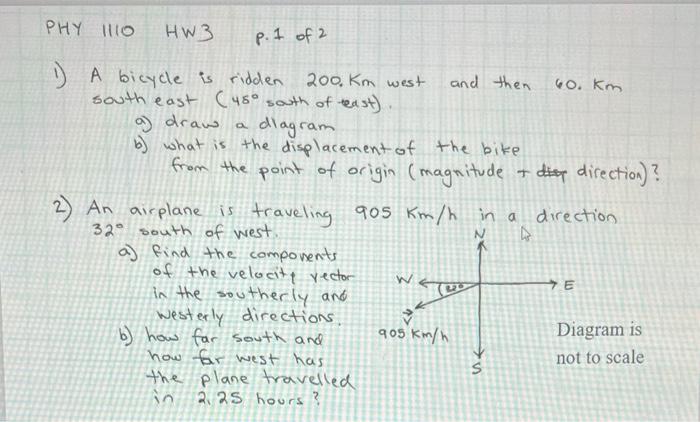 PHY 1110 HW3 p.1 of 2
1) A bicycle is ridden 200. Km west and then 60. Km
south east (45° south of east).
a) draw a diagram
b) what is the displacement of the bike
from the point of origin (magnitude + direction)?
2) An airplane is traveling 905 Km/h in a direction
32° south of west.
a) find the components
of the velocity vector
in the southerly and
westerly directions.
b) how far south and
how far west has
the plane travelled
in 2.25 hours?
N
W
32°
E
V
905 Km/h
S
Diagram is
not to scale